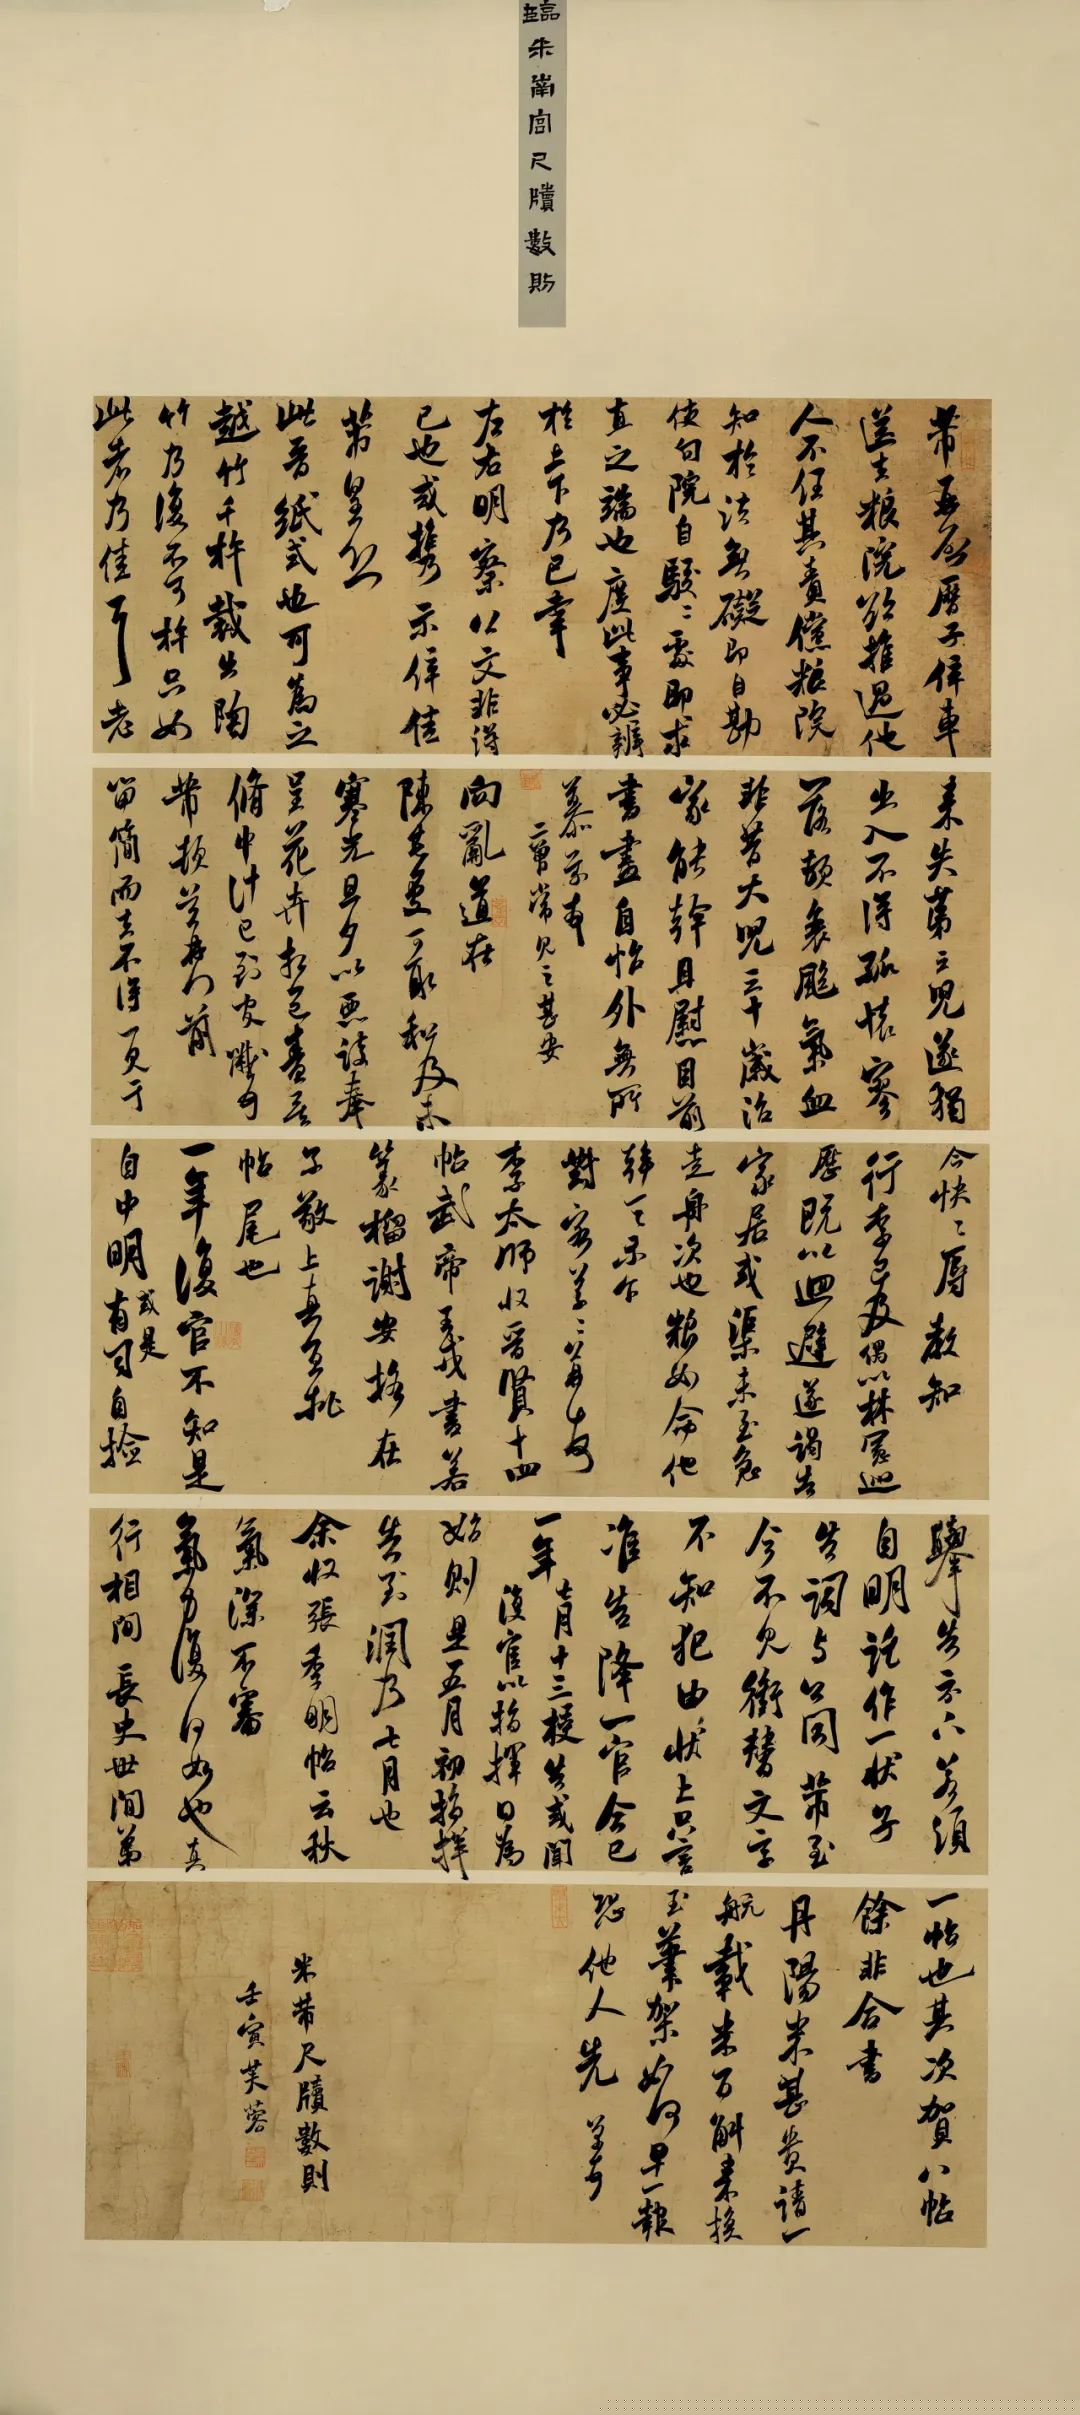 臨米南宫尺牘數則
芾再启曆子倅車
送去粮院欲推過他
人不任其責儻粮院
知於法無礙即自勘
使句院自駮〻處即求
直之端也度此事必辨
於上下乃已幸
左右明察以文非得
已也或携示倅佳
芾皇恐
此晋紙式也可為之
越竹千杵裁出陶
竹乃復不可杵只如
此者乃佳耳老
来失第三兒遂獨
出入不得孤懷寥
落頓衰颰氣血
非昔大兒三十歲治
家能幹且慰目前
書畫自怡外無所
慕芾友
二曾常見之甚安
向亂道在
陳生處可取和及未
寒光旦夕以惡詩奉
呈花卉想已盡矣
脩中計已到官
芾頓首再門前
留簡而去不得一見于
今怏〻辱教知
行李及偶以林
歷既以迴避遂謁告
家居或渠未至急
走舟次也粮如命他
幹一一示下
對客草〻芾友
李太師收晋賢十四
帖武帝王戎書若
篆籀謝安格在
子敬上真宜批
帖尾也
一年復官不知是
自申明或是有司自檢
舉告示下若須
自明託作一状子
告詞与公同芾至
今不見衝替文字
不知犯由状上只言
准告降一官今已
一年七月十三授告或聞
復官以指揮日為
始則是五月初指揮
告到潤乃七月也
余收張季明帖云秋
氣深不審
氣力復何如也真
行相間長史世間第
一帖也其次賀八帖
餘非合書
丹陽米甚贵請一
航載米百斛来换
玉筆架如何早一報
恐他人先芾頓首
米芾尺牘數則
壬寅芙蓉